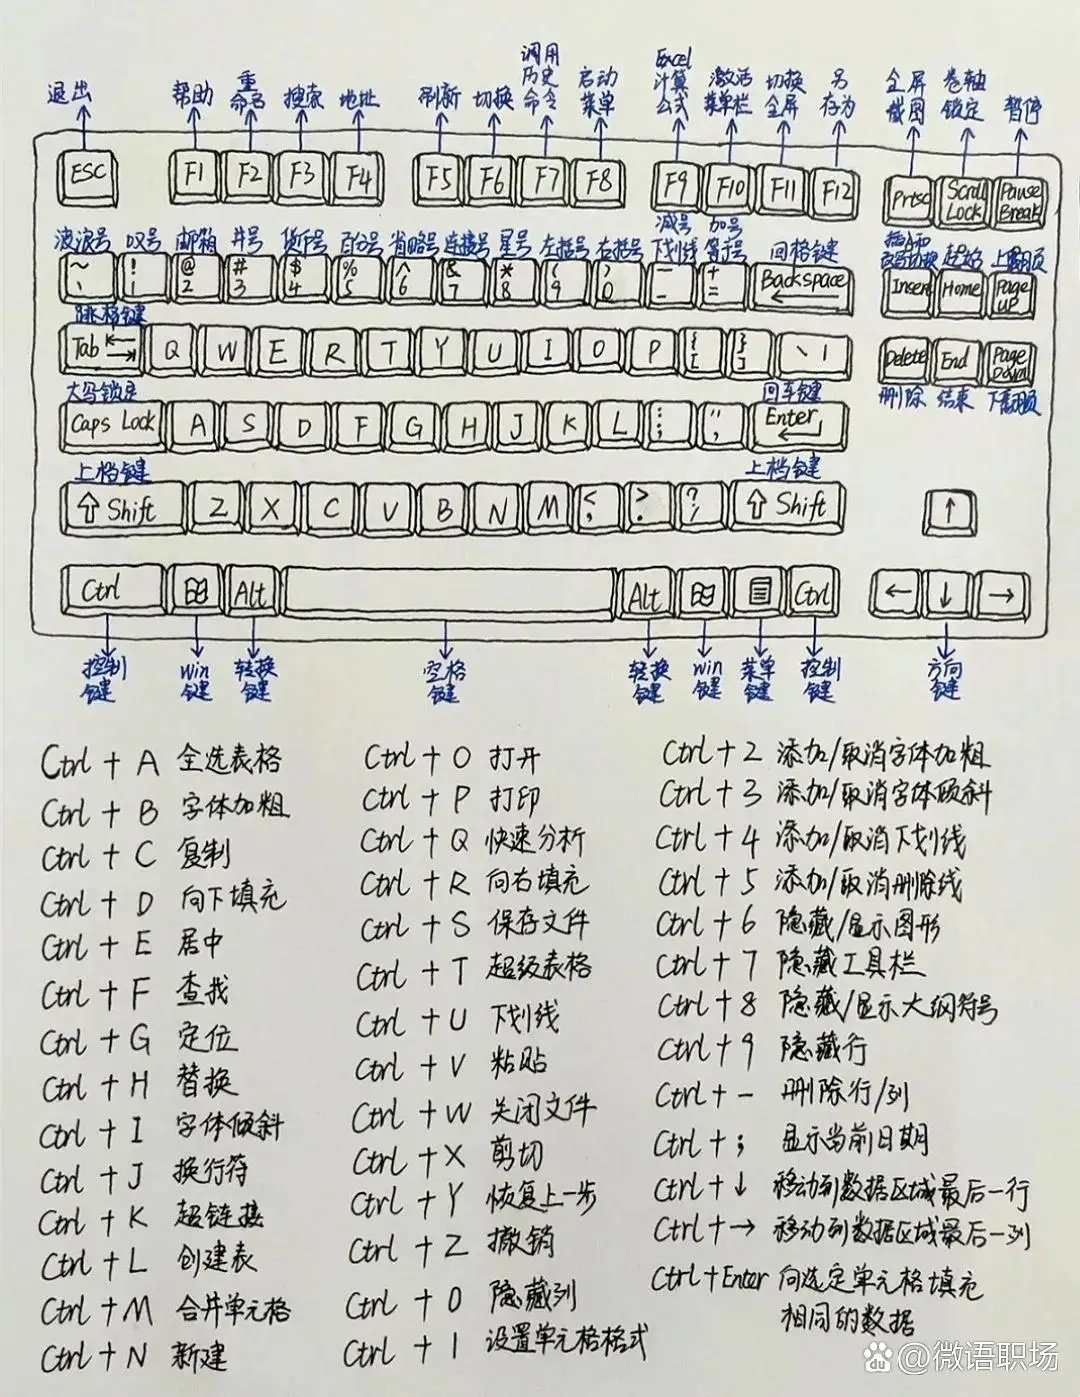 退出
帮助
重
命名
搜索
地址
刷新
切换
调用
历史
命令
启动
菜单
Excel
计算
公式
激活
菜单栏
切换
全屏
另
存为
全屏
截图
卷轴
锁定
暂停
ESC
F1
F2
F3
F4
F5
F6
F7
F8
F9
F10
F11
F12
Prtsc
Scroll
Lock
Pause
Break
波浪号
叹号
邮箱
井号
货币号
百分号
省略号
连接号
星号
左括号
右括号
减号
下划线
加号
等于号
回格键
插入和
改写切换
起始
上翻页
~
!
@
2
#
3
$
4
%
5
^
6
&
7
*
8
(
9
)
0
—
-
+
=
Backspace
Insert
Home
Page
UP
跳格键
Tab
Q
W
E
R
T
Y
U
I
O
P
{
[
}
]
\ |
Delete
End
Page
Down
删除
结束
下翻页
大写锁定
回车键
Caps Lock
A
S
D
F
G
H
J
K
L
:
;
"
,
Enter
上档键
上档键
⇧ Shift
Z
X
C
V
B
N
M
<
,
>
.
?
/
⇧ Shift
↑
Ctrl
Alt
Alt
Ctrl
←
↓
→
控制
键
win
键
转换
键
空格
键
转换
键
win
键
菜单
键
控制
键
方向
键
Ctrl + A 全选表格
Ctrl + B 字体加粗
Ctrl + C 复制
Ctrl + D 向下填充
Ctrl + E 居中
Ctrl + F 查找
Ctrl + G 定位
Ctrl + H 替换
Ctrl + I 字体倾斜
Ctrl + J 换行符
Ctrl + K 超链接
Ctrl + L 创建表
Ctrl + M 合并单元格
Ctrl + N 新建
Ctrl + O 打开
Ctrl + P 打印
Ctrl + Q 快速分析
Ctrl + R 向右填充
Ctrl + S 保存文件
Ctrl + T 超级表格
Ctrl + U 下划线
Ctrl + V 粘贴
Ctrl + W 关闭文件
Ctrl + X 剪切
Ctrl + Y 恢复上一步
Ctrl + Z 撤销
Ctrl + 0 隐藏列
Ctrl + 1 设置单元格格式
Ctrl + 2 添加/取消字体加粗
Ctrl + 3 添加/取消字体倾斜
Ctrl + 4 添加/取消下划线
Ctrl + 5 添加/取消删除线
Ctrl + 6 隐藏/显示图形
Ctrl + 7 隐藏工具栏
Ctrl + 8 隐藏/显示大纲符号
Ctrl + 9 隐藏行
Ctrl + - 删除行/列
Ctrl + ; 显示当前日期
Ctrl + ↓ 移动到数据区域最后一行
Ctrl + → 移动到数据区域最后一列
Ctrl + Enter 向选定单元格填充
相同的数据
Bai du @微语职场